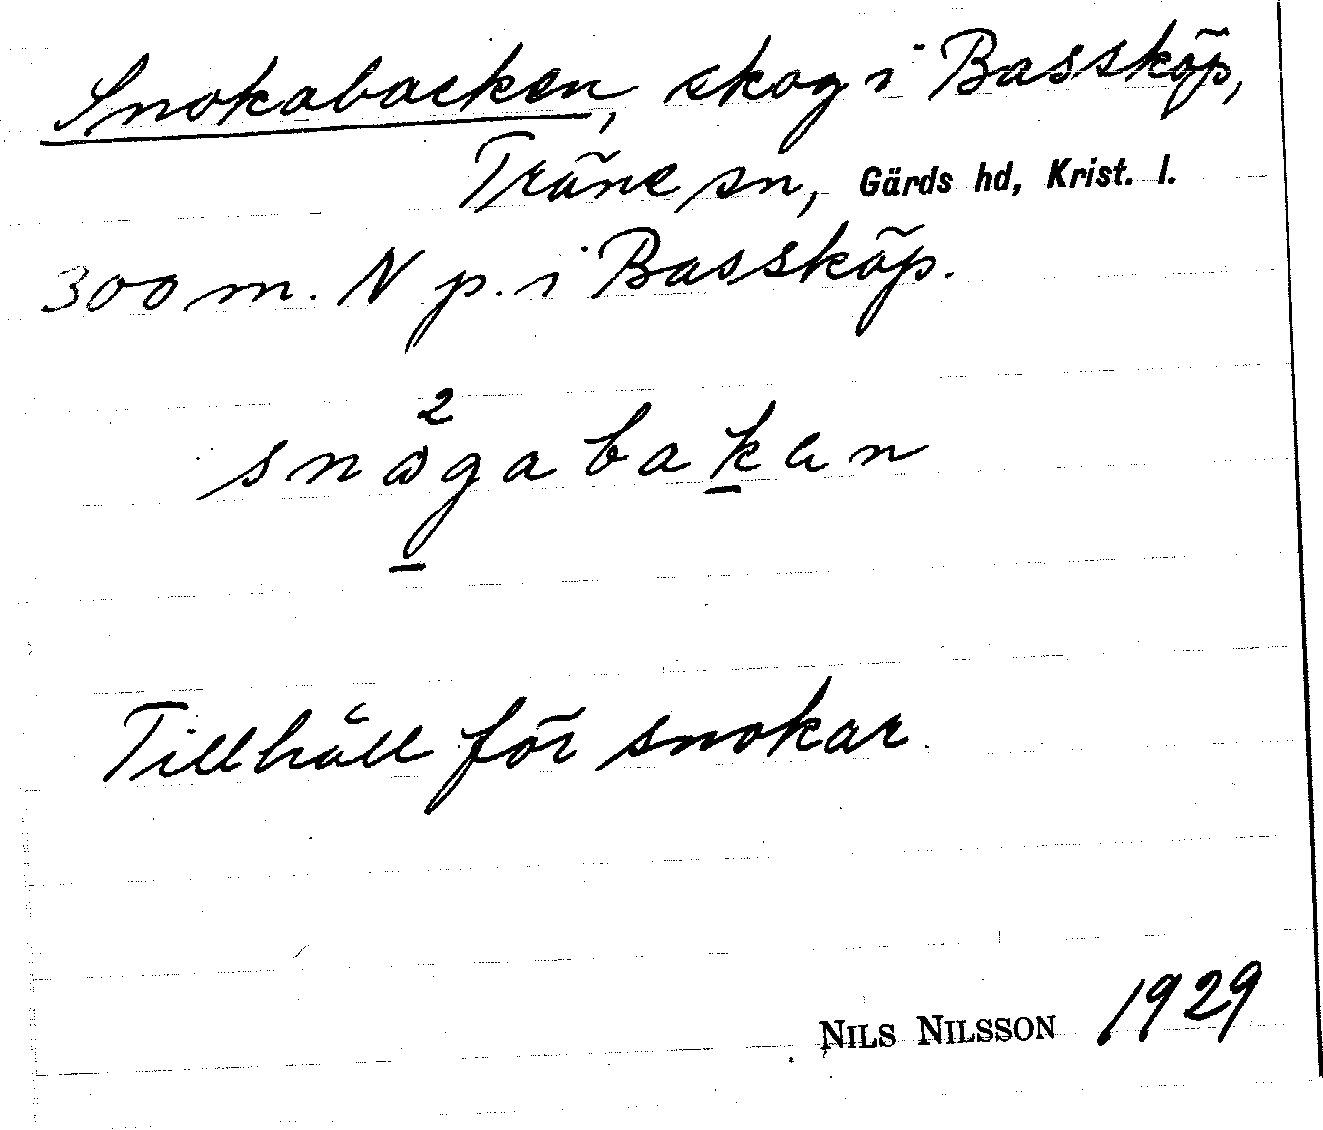 Snokabacken, skog i Bassköp,
Träne sn, Gärds hd, Krist. l.
300 m. N p. i Bassköp.
snågabakan
Tillhåll för snokar.
NILS NILSSON 1929